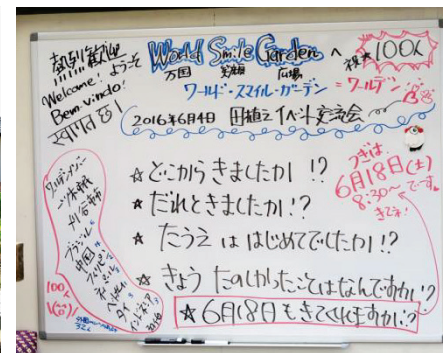 熱烈歓迎 ようこそ
Welcome!
Bem-vindo!
World Smile Garden へ
万国 笑顔 広場
祝★100人
ワールド・スマイル・ガーデン = ワールデン
2016年6月4日 田植えイベント交流会
☆どこからきましたか!?
☆だれときましたか!?
☆たうえははじめてでしたか!?
☆きょうたのしかったことはなんですか!?
☆6月18日もきてくれますか!?
つぎは
6月18日(土)
8:30〜です。
きてネ!
ブラジル
中国
フィリピン
ネパール
ベトナム
タイ
インドネシア
100人